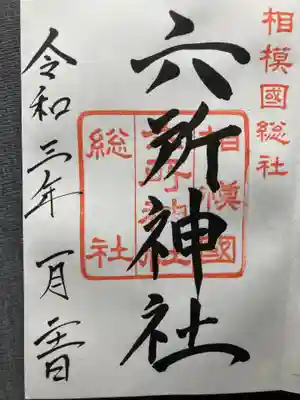 相模國総社
六所神社
相模國
六所神社
総社
令和三年一月二十日